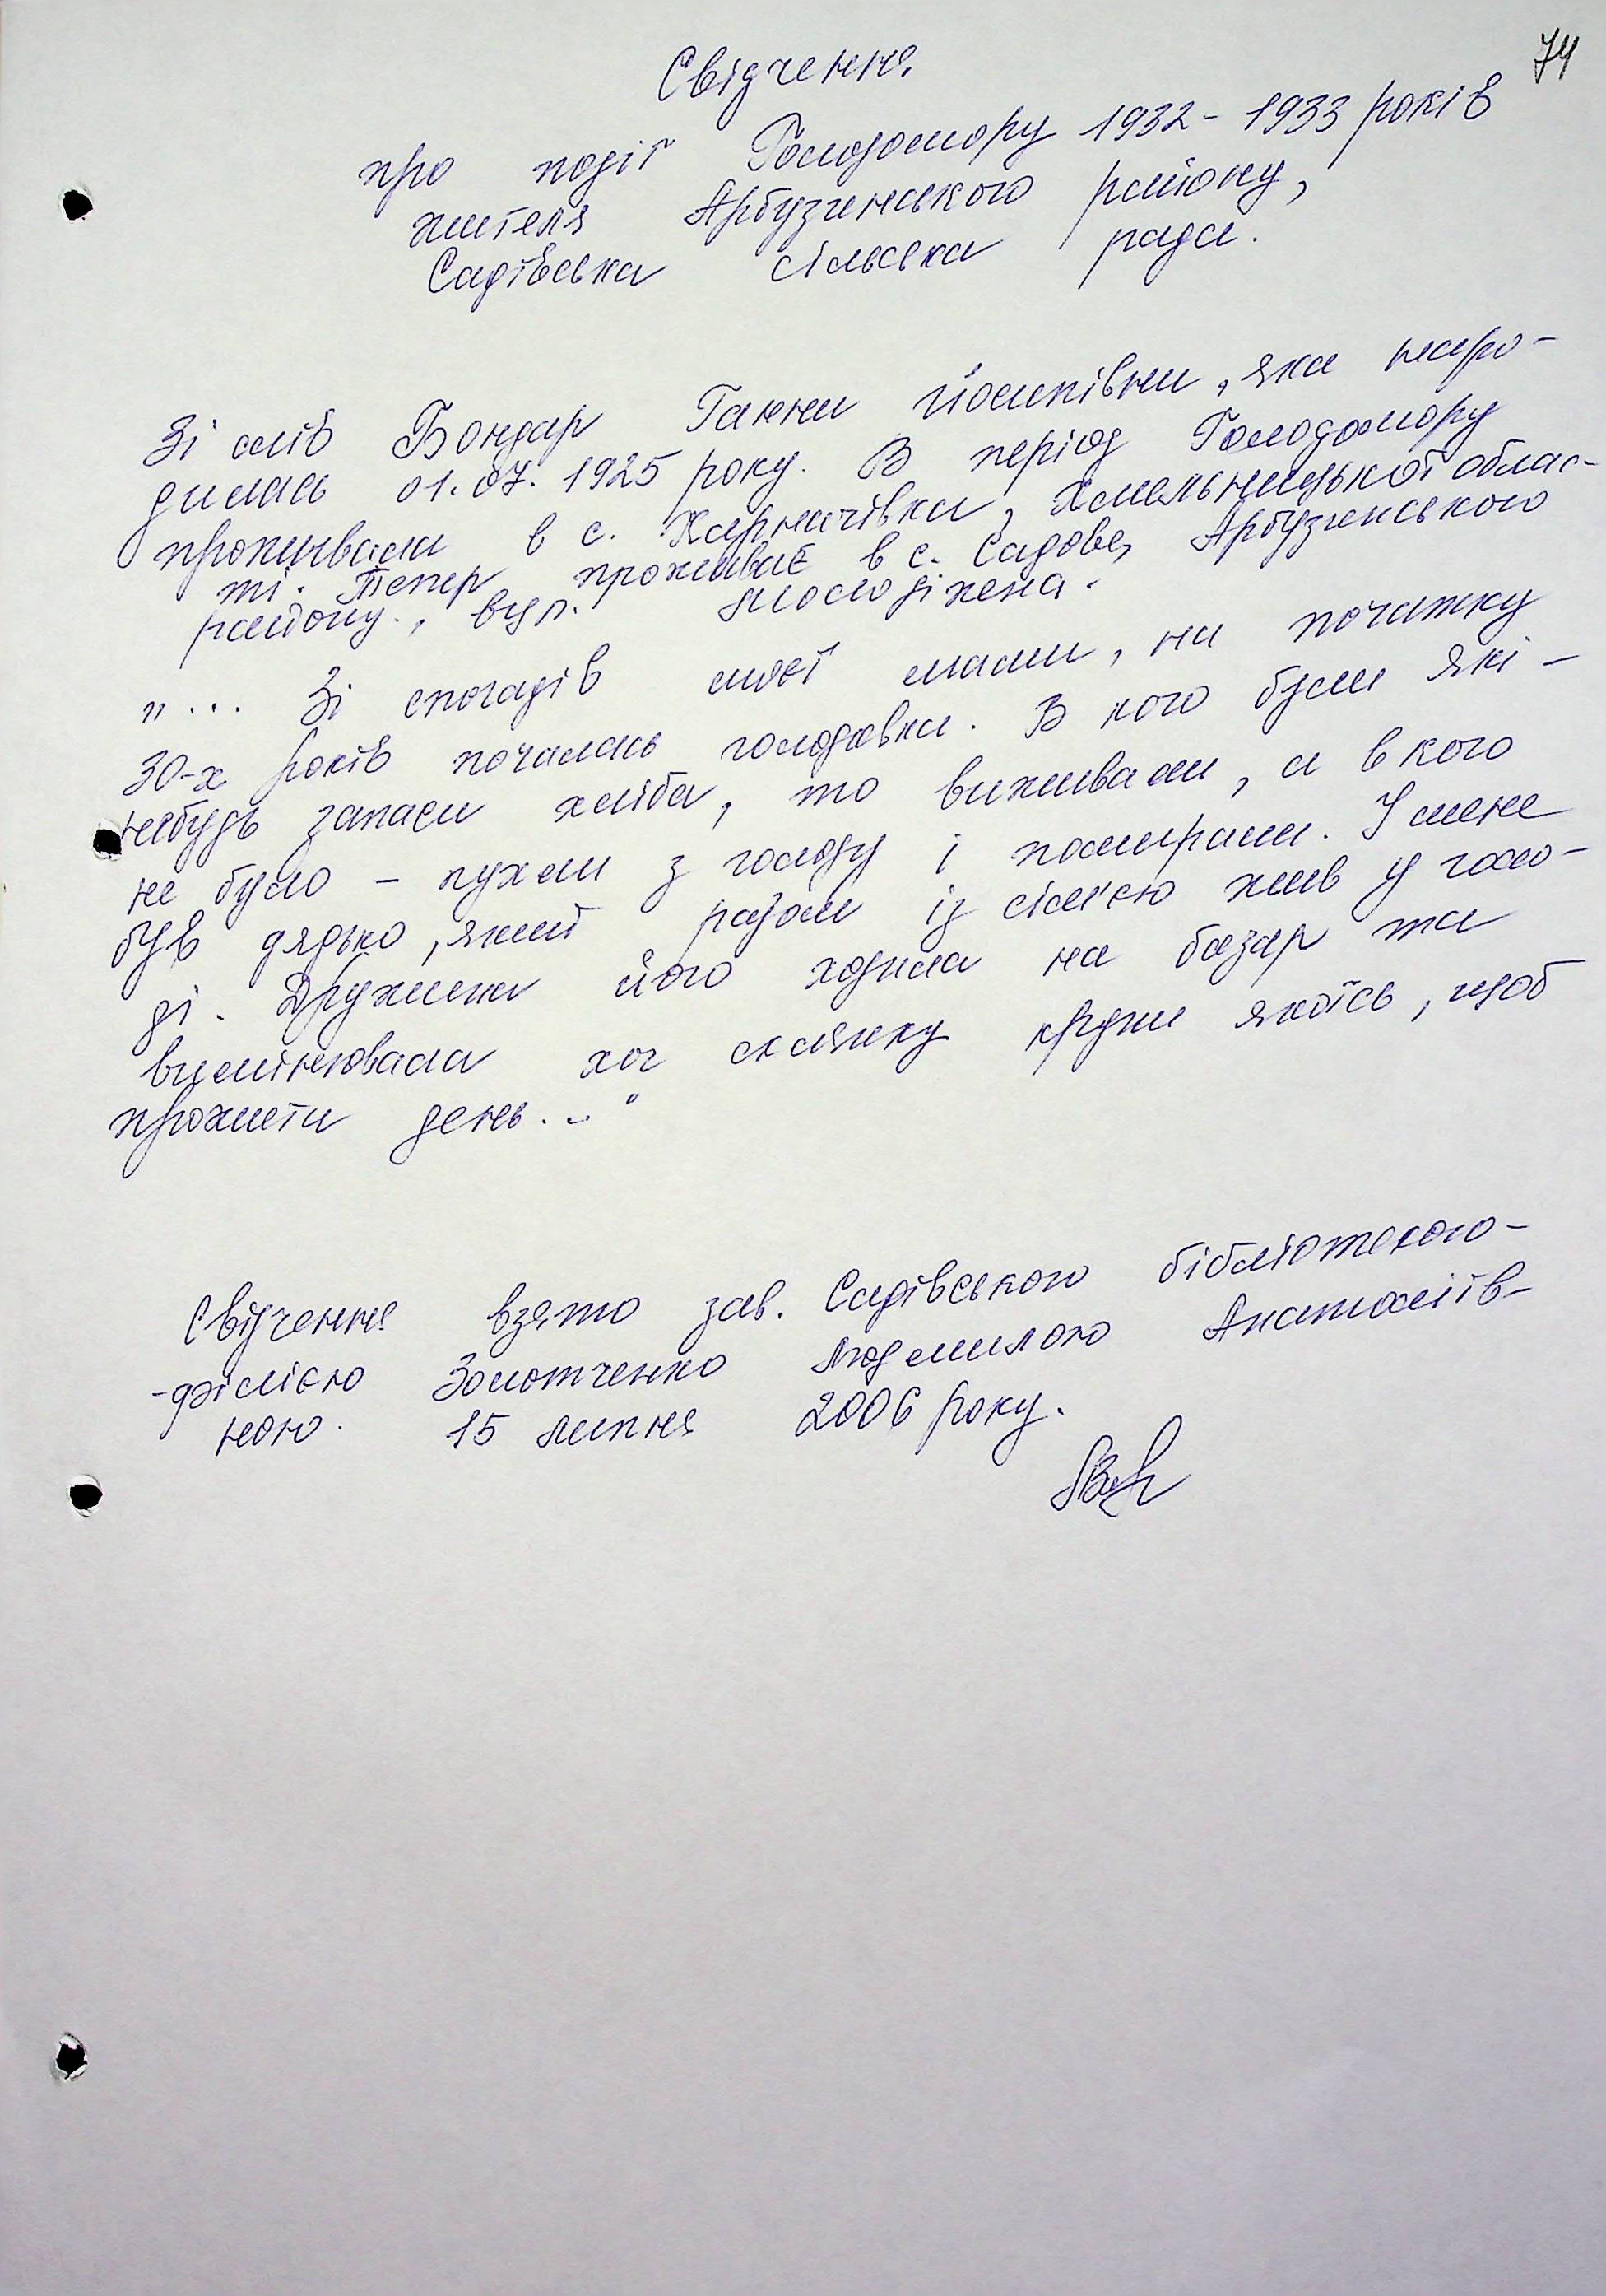 74
Свідчення
про події Голодомору 1932-1933 років
жителя Арбузинського району,
Садівська сільська рада.
Зі слів Бондар Ганни Йосипівни, яка наро-
дилась 01.07.1925 року. В період Голодомору
проживала в с. Харпачівка, Хмельницької облас-
ті. Тепер проживає в с. Садове, Арбузинського
району., вул. Молодіжна.
"... Зі спогадів моєї мами, на початку
30-х років почалась голодовка. В кого були які-
небудь запаси хліба, то виживали, а в кого
не було - пухли з голоду і помирали. У мене
був дядько, який разом із сім'єю жив у голо-
ді. Дружина його ходила на базар та
вимінювала хоч склянку крупи якоїсь, щоб
прожити день..."
Свідчення взято зав. Садівською бібліотекою-
-філією Золотченко Людмилою Анатоліїв-
ною. 15 липня 2006 року.